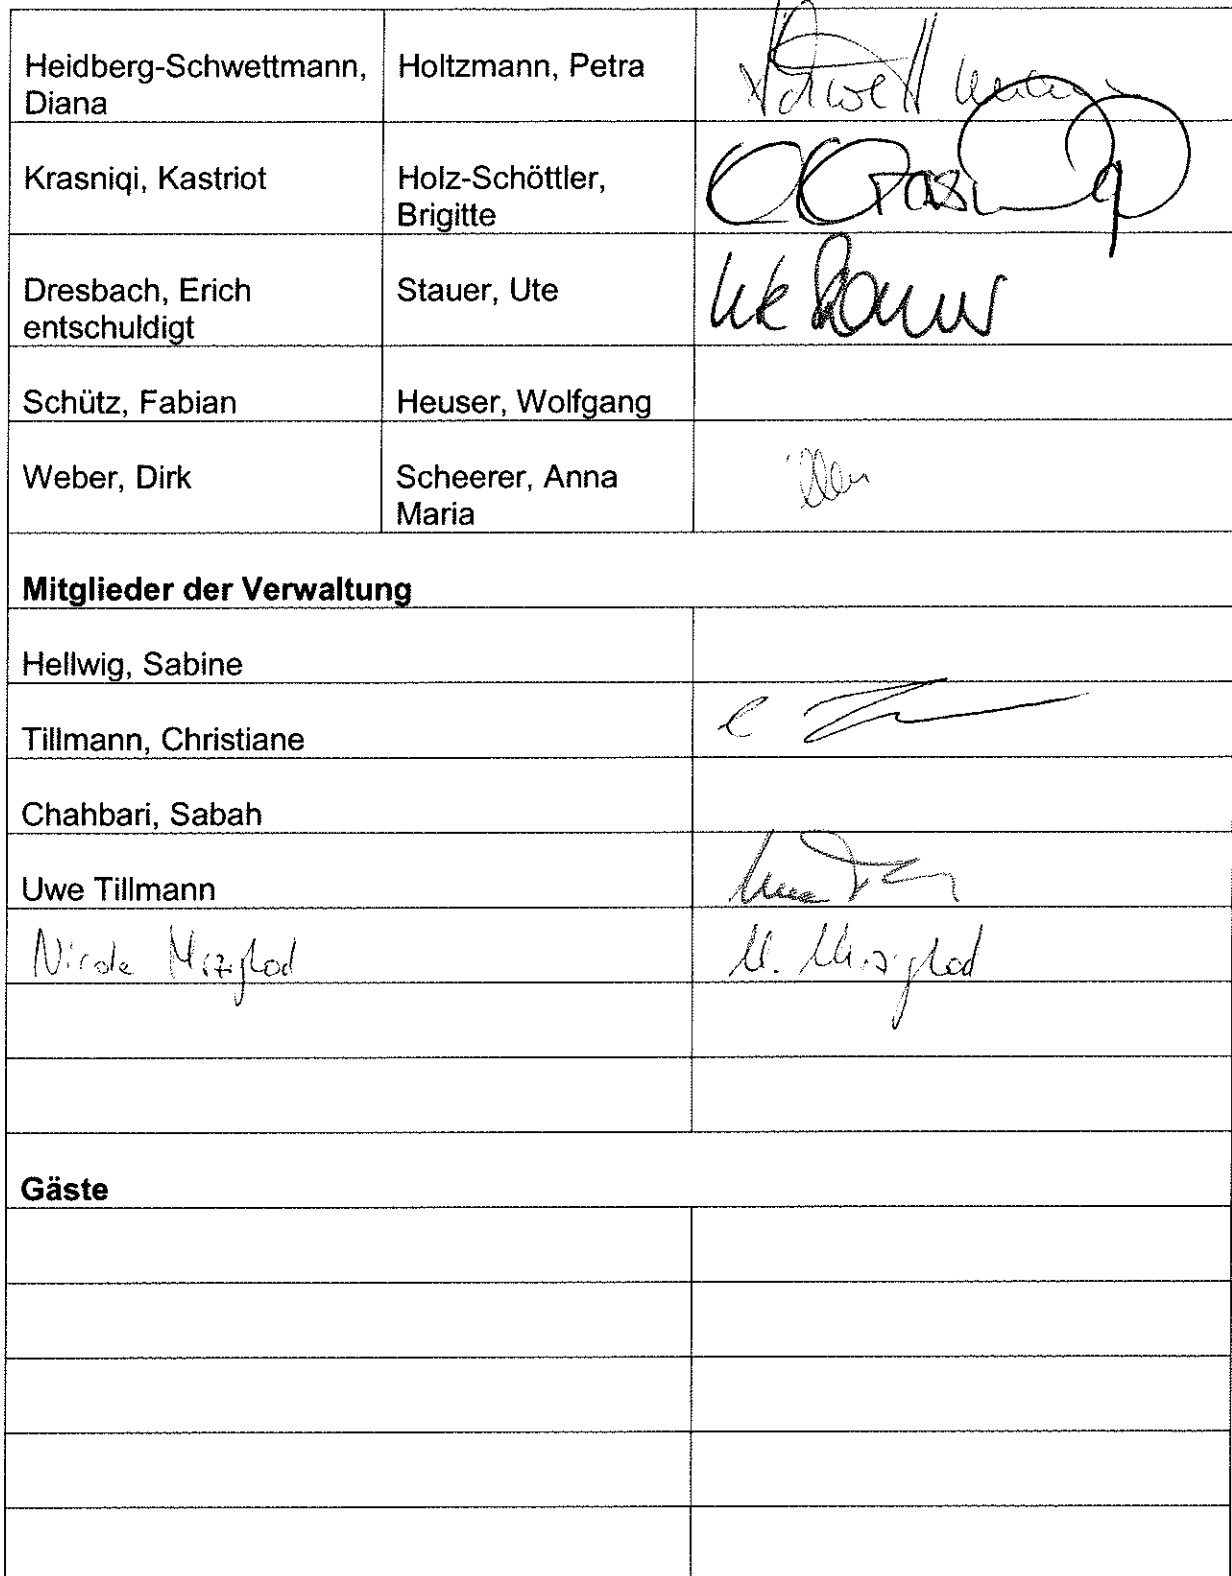 Heidberg-Schwettmann, Holtzmann, Petra
Diana
Krasniqi, Kastriot Holz-Schöttler,
Brigitte
Dresbach, Erich Stauer, Ute
entschuldigt
Schütz, Fabian Heuser, Wolfgang
Weber, Dirk Scheerer, Anna
Maria
Mitglieder der Verwaltung
Hellwig, Sabine
Tillmann, Christiane
Chahbari, Sabah
Uwe Tillmann
Nicole
Gäste